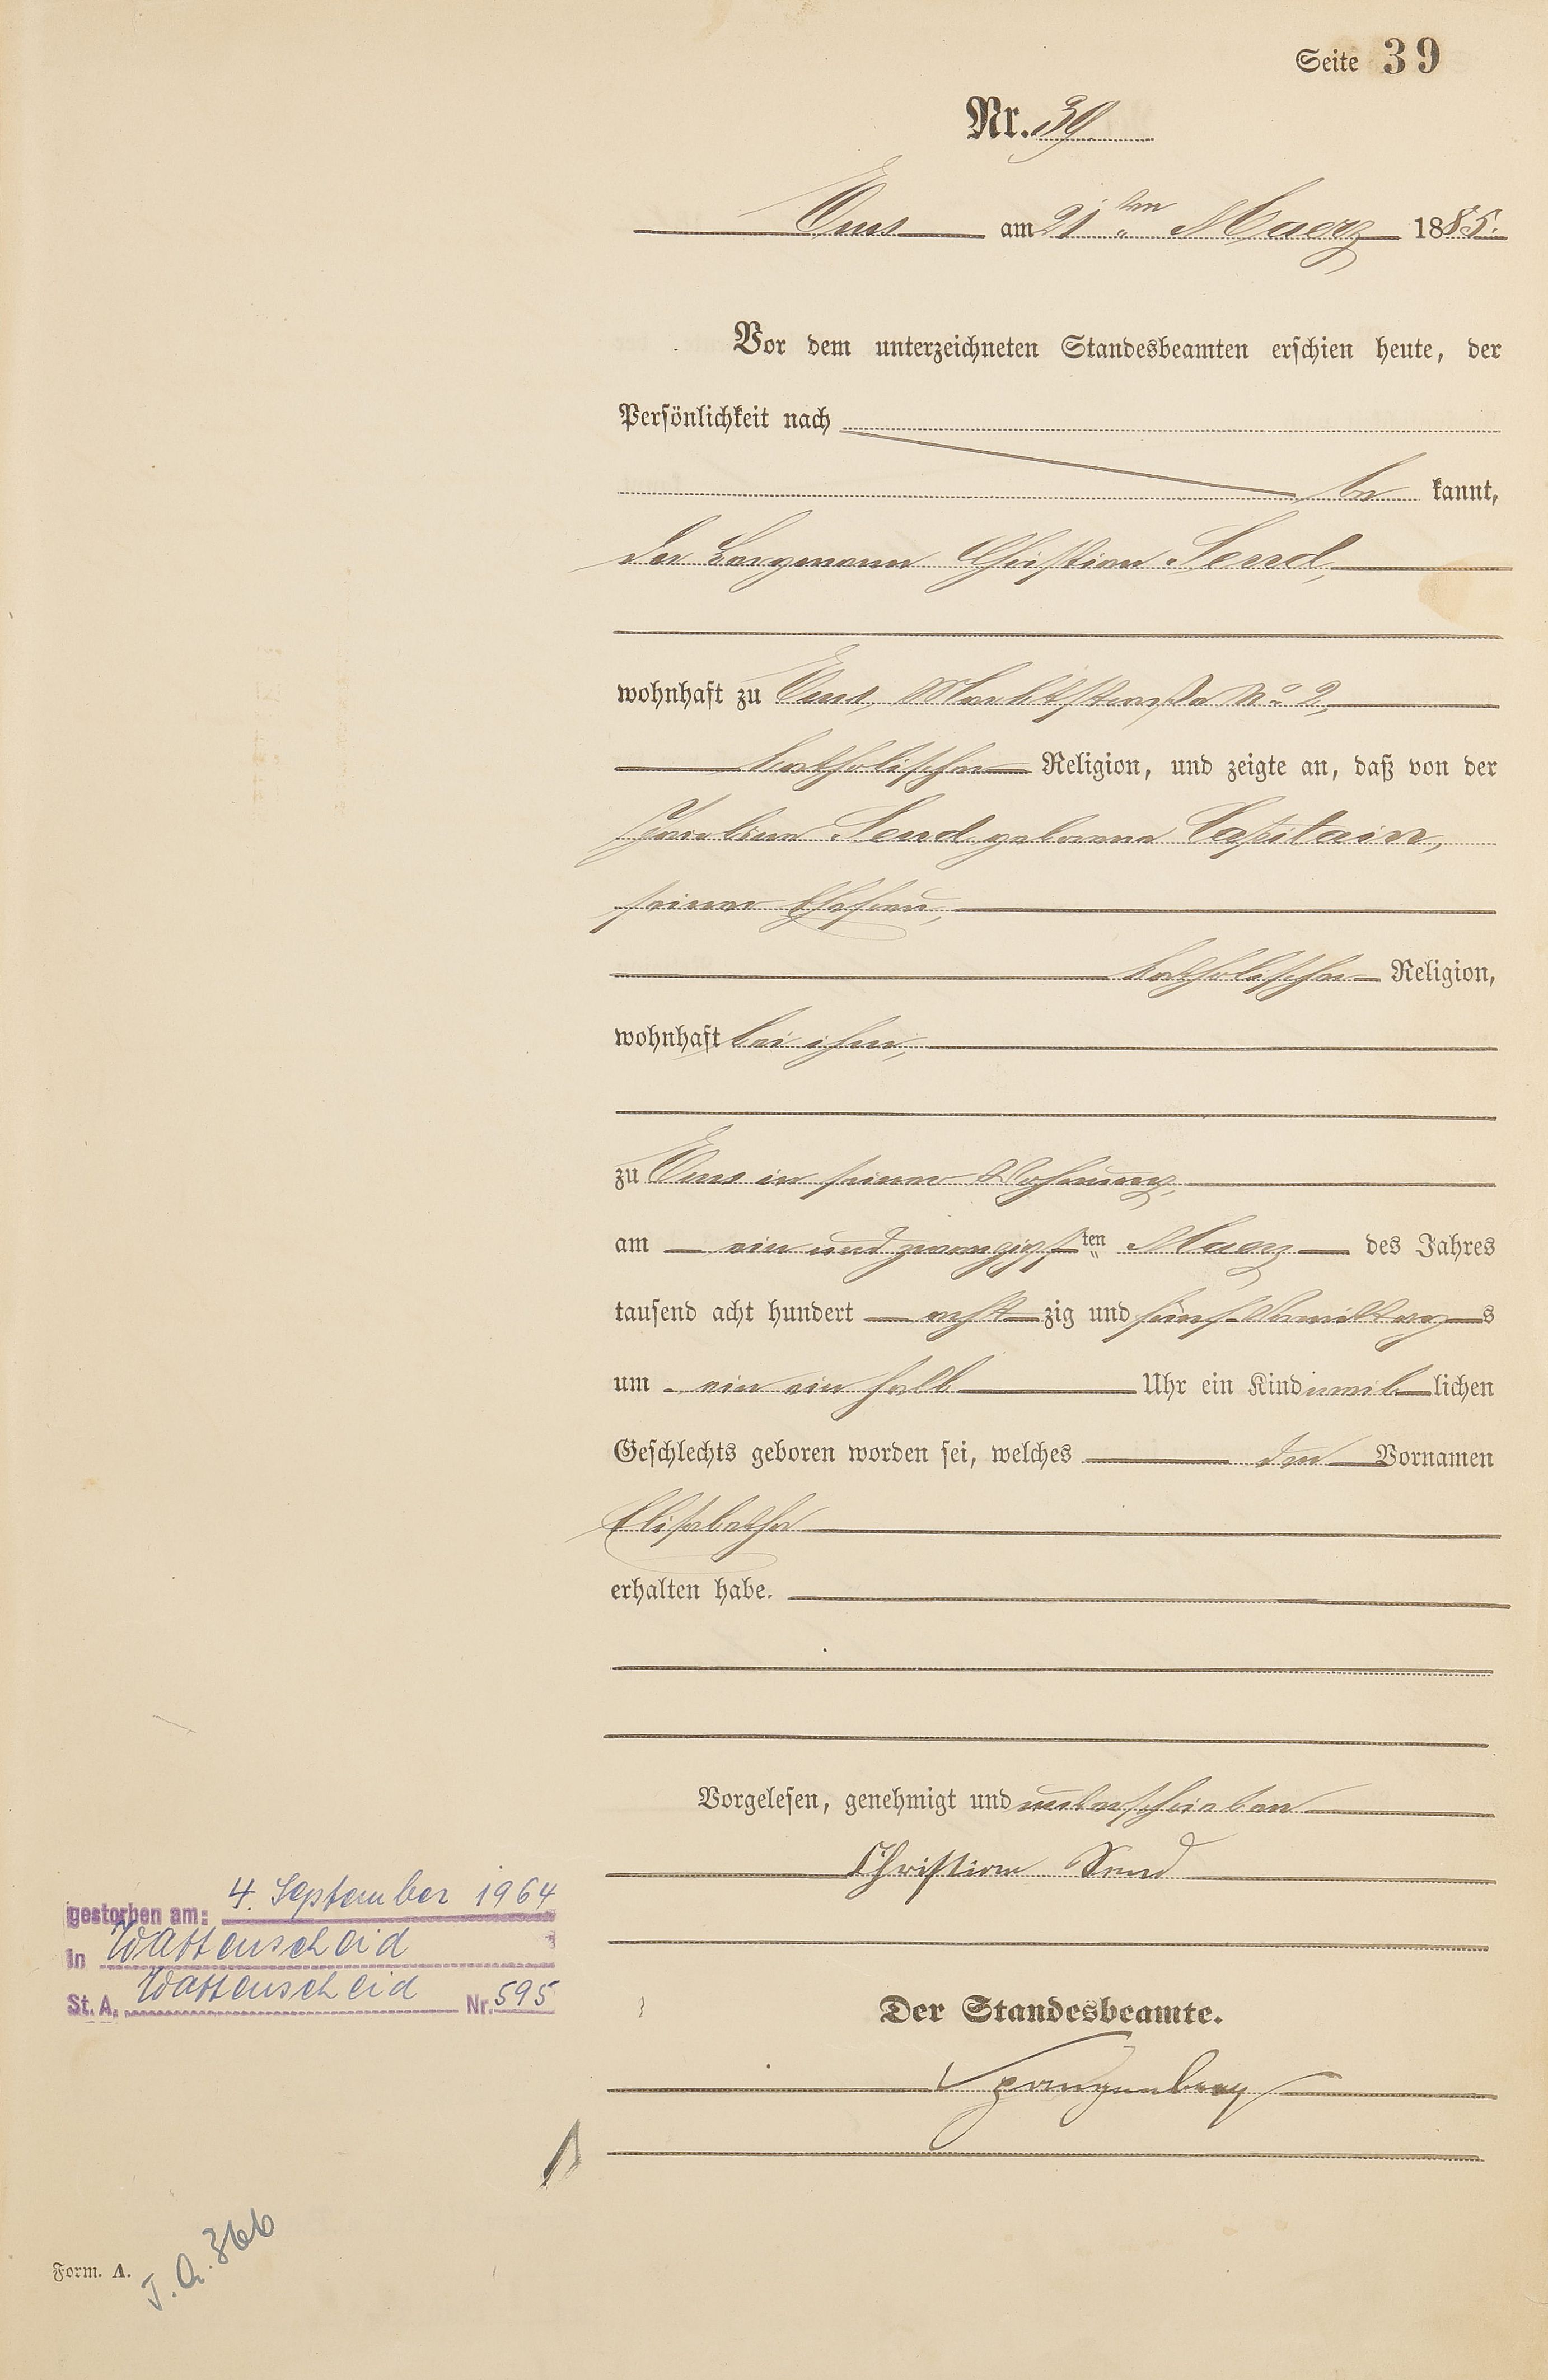 Seite 39
Nr. 39
Ems am 21ten Maerz 1885.
Vor dem unterzeichneten Standesbeamten erschien heute, der
Persönlichkeit nach
be kannt,
der Bergmann Christian Send,
wohnhaft zu Ems, Marktstraße No 2,
katholischer Religion, und zeigte an, daß von der
Send geborene Capitain,
seiner Ehefrau,
katholischer Religion,
wohnhaft bei ihm,
zu Ems in seiner Wohnung,
am ein und zwanzigsten Maerz des Jahres
tausend acht hundert acht zig und fünf Vormittags
um ein ein halb Uhr ein Kind weiblichen
Geschlechts geboren worden sei, welches den Vornamen
Elisabetha
erhalten habe.
Vorgelesen, genehmigt und unterschrieben
Christian Send
gestorben am: 4. September 1964
in Wattenscheid
St. A. Wattenscheid Nr. 595
Der Standesbeamte.
Spangenberg
Form. A.